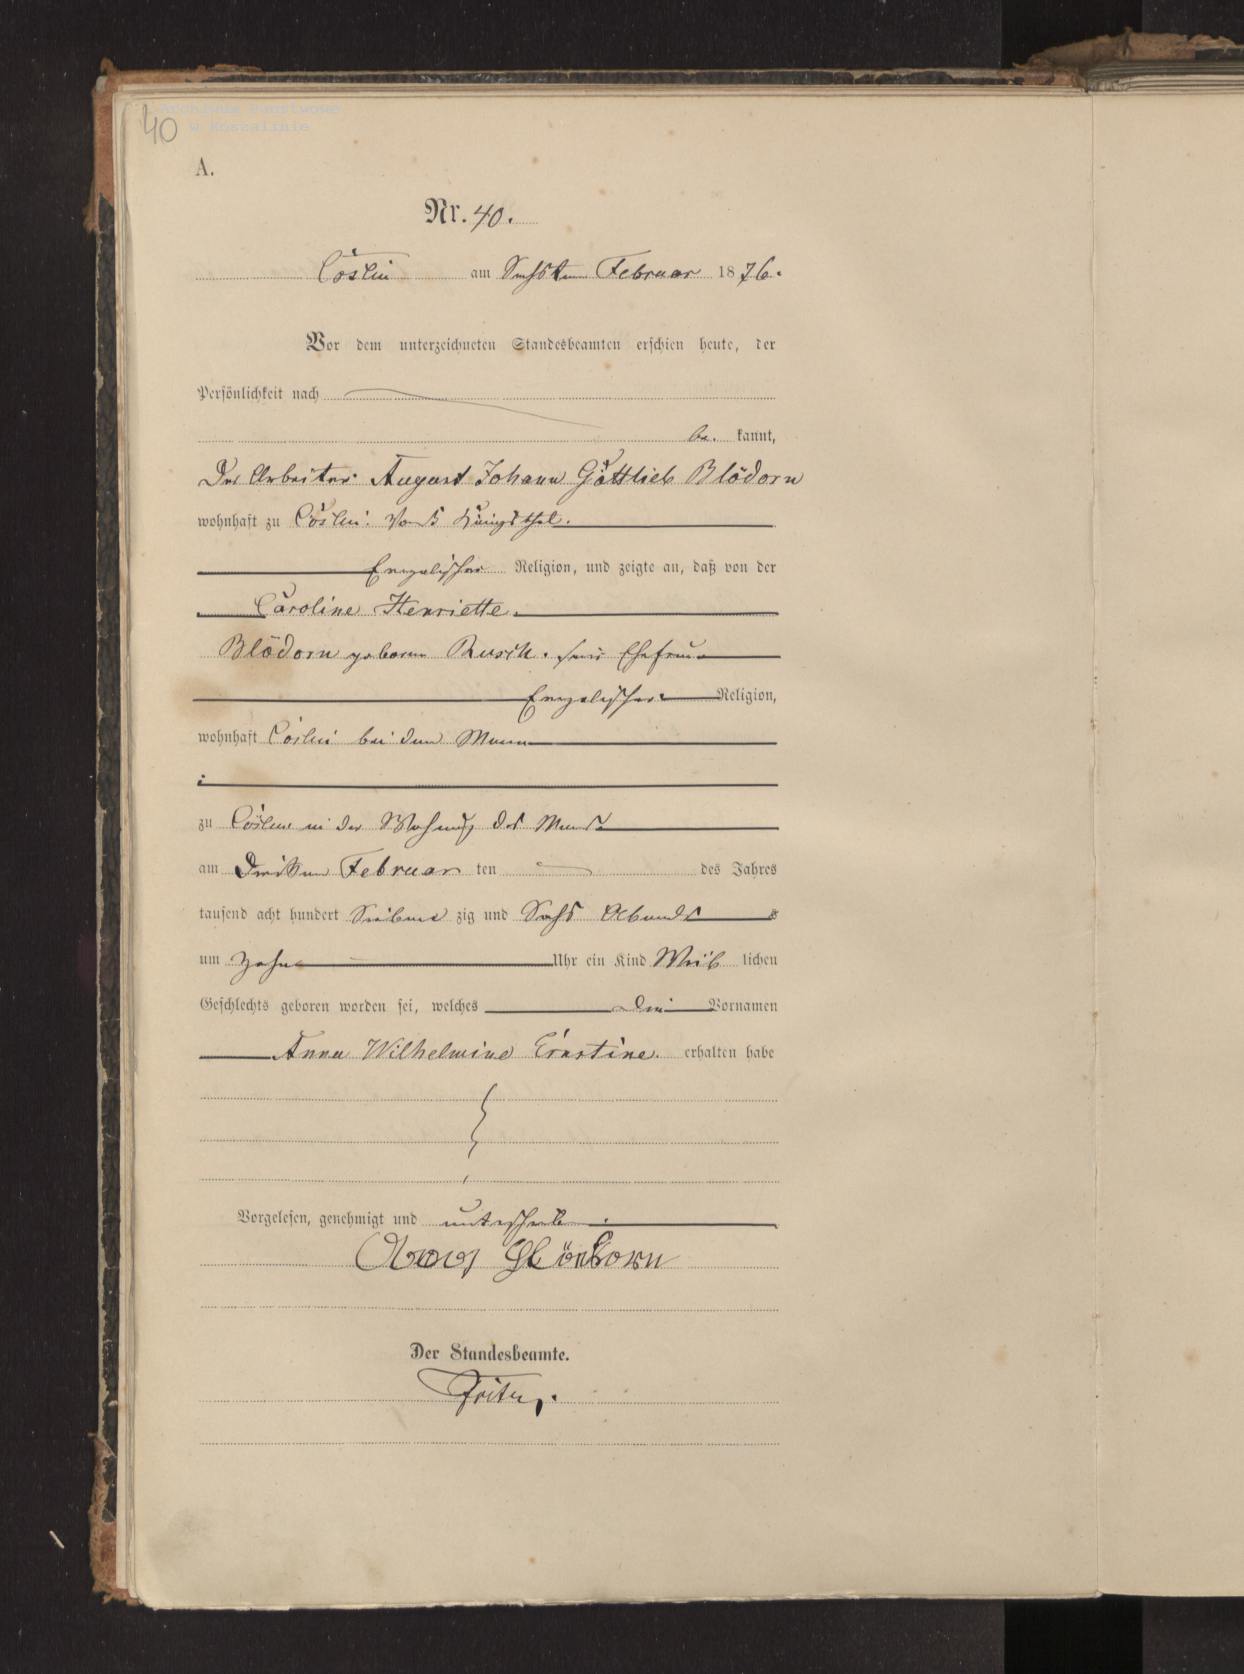 40
Archiwum Państwowe
w Koszalinie
A.
Nr. 40.
Cöslin am Sechsten Februar 1876.
Vor dem unterzeichneten Standesbeamten erschien heute, der
Persönlichkeit nach
be kannt,
Der Arbeiter August Johann Gottlieb Blödorn
wohnhaft zu Cöslin
Evangelischer Religion, und zeigte an, daß von der
Caroline Henriette
Blödorn geboren Rusch. seine Ehefrau
Evangelischer Religion,
wohnhaft Cöslin bei dem Mann
zu Cöslin in der Wohnung des Manns
am Dritten Februar ten des Jahres
tausend acht hundert Sieben zig und Sechs Abends s
um Zehn Uhr ein Kind Weib lichen
Geschlechts geboren worden sei, welches Drei Vornamen
Anna Wilhelmine Ernstine. erhalten habe
Vorgelesen, genehmigt und unterschrieben
Blödorn
Der Standesbeamte.